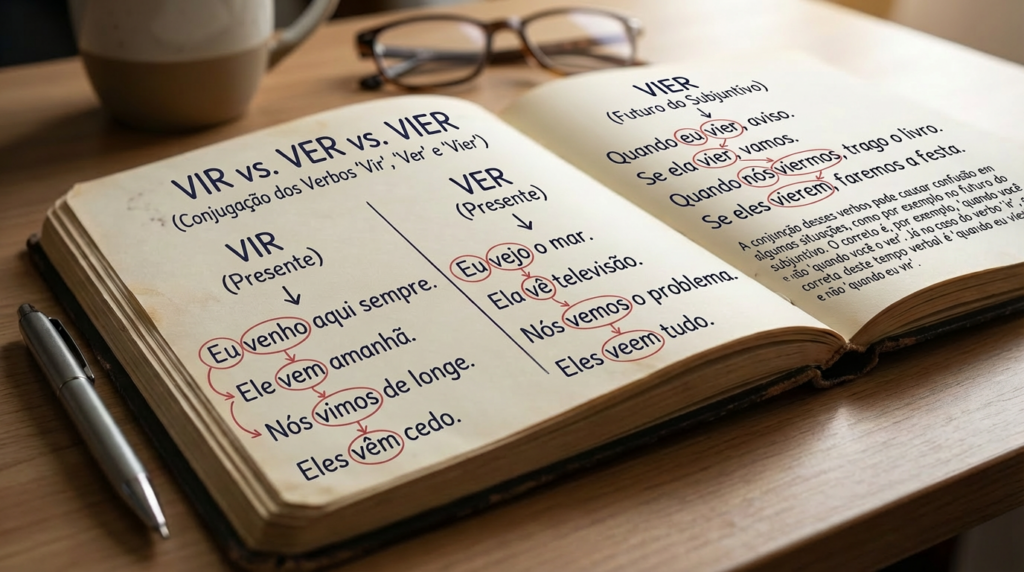 VIR vs. VER vs. VIER
(Conjugação dos Verbos 'Vir', 'Ver' e 'Vier')
VIR
(Presente)
Eu venho aqui sempre.
Ele vem amanhã.
Nós vimos de longe.
Eles vêm cedo.
VER
(Presente)
Eu vejo o mar.
Ela vê televisão.
Nós vemos o problema.
Eles veem tudo.
VIER
(Futuro do Subjuntivo)
Quando eu vier, aviso.
Se ela vier, vamos.
Quando nós viermos, trago o livro.
Se eles vierem, faremos a festa.
A conjunção desses verbos pode causar confusão em
algumas situações, como por exemplo no futuro do
subjuntivo. O correto é, por exemplo, 'quando você
e não 'quando você o ver'. Já no caso do verbo 'ir', a
correta deste tempo verbal é 'quando eu vier'
e não 'quando eu vir'.